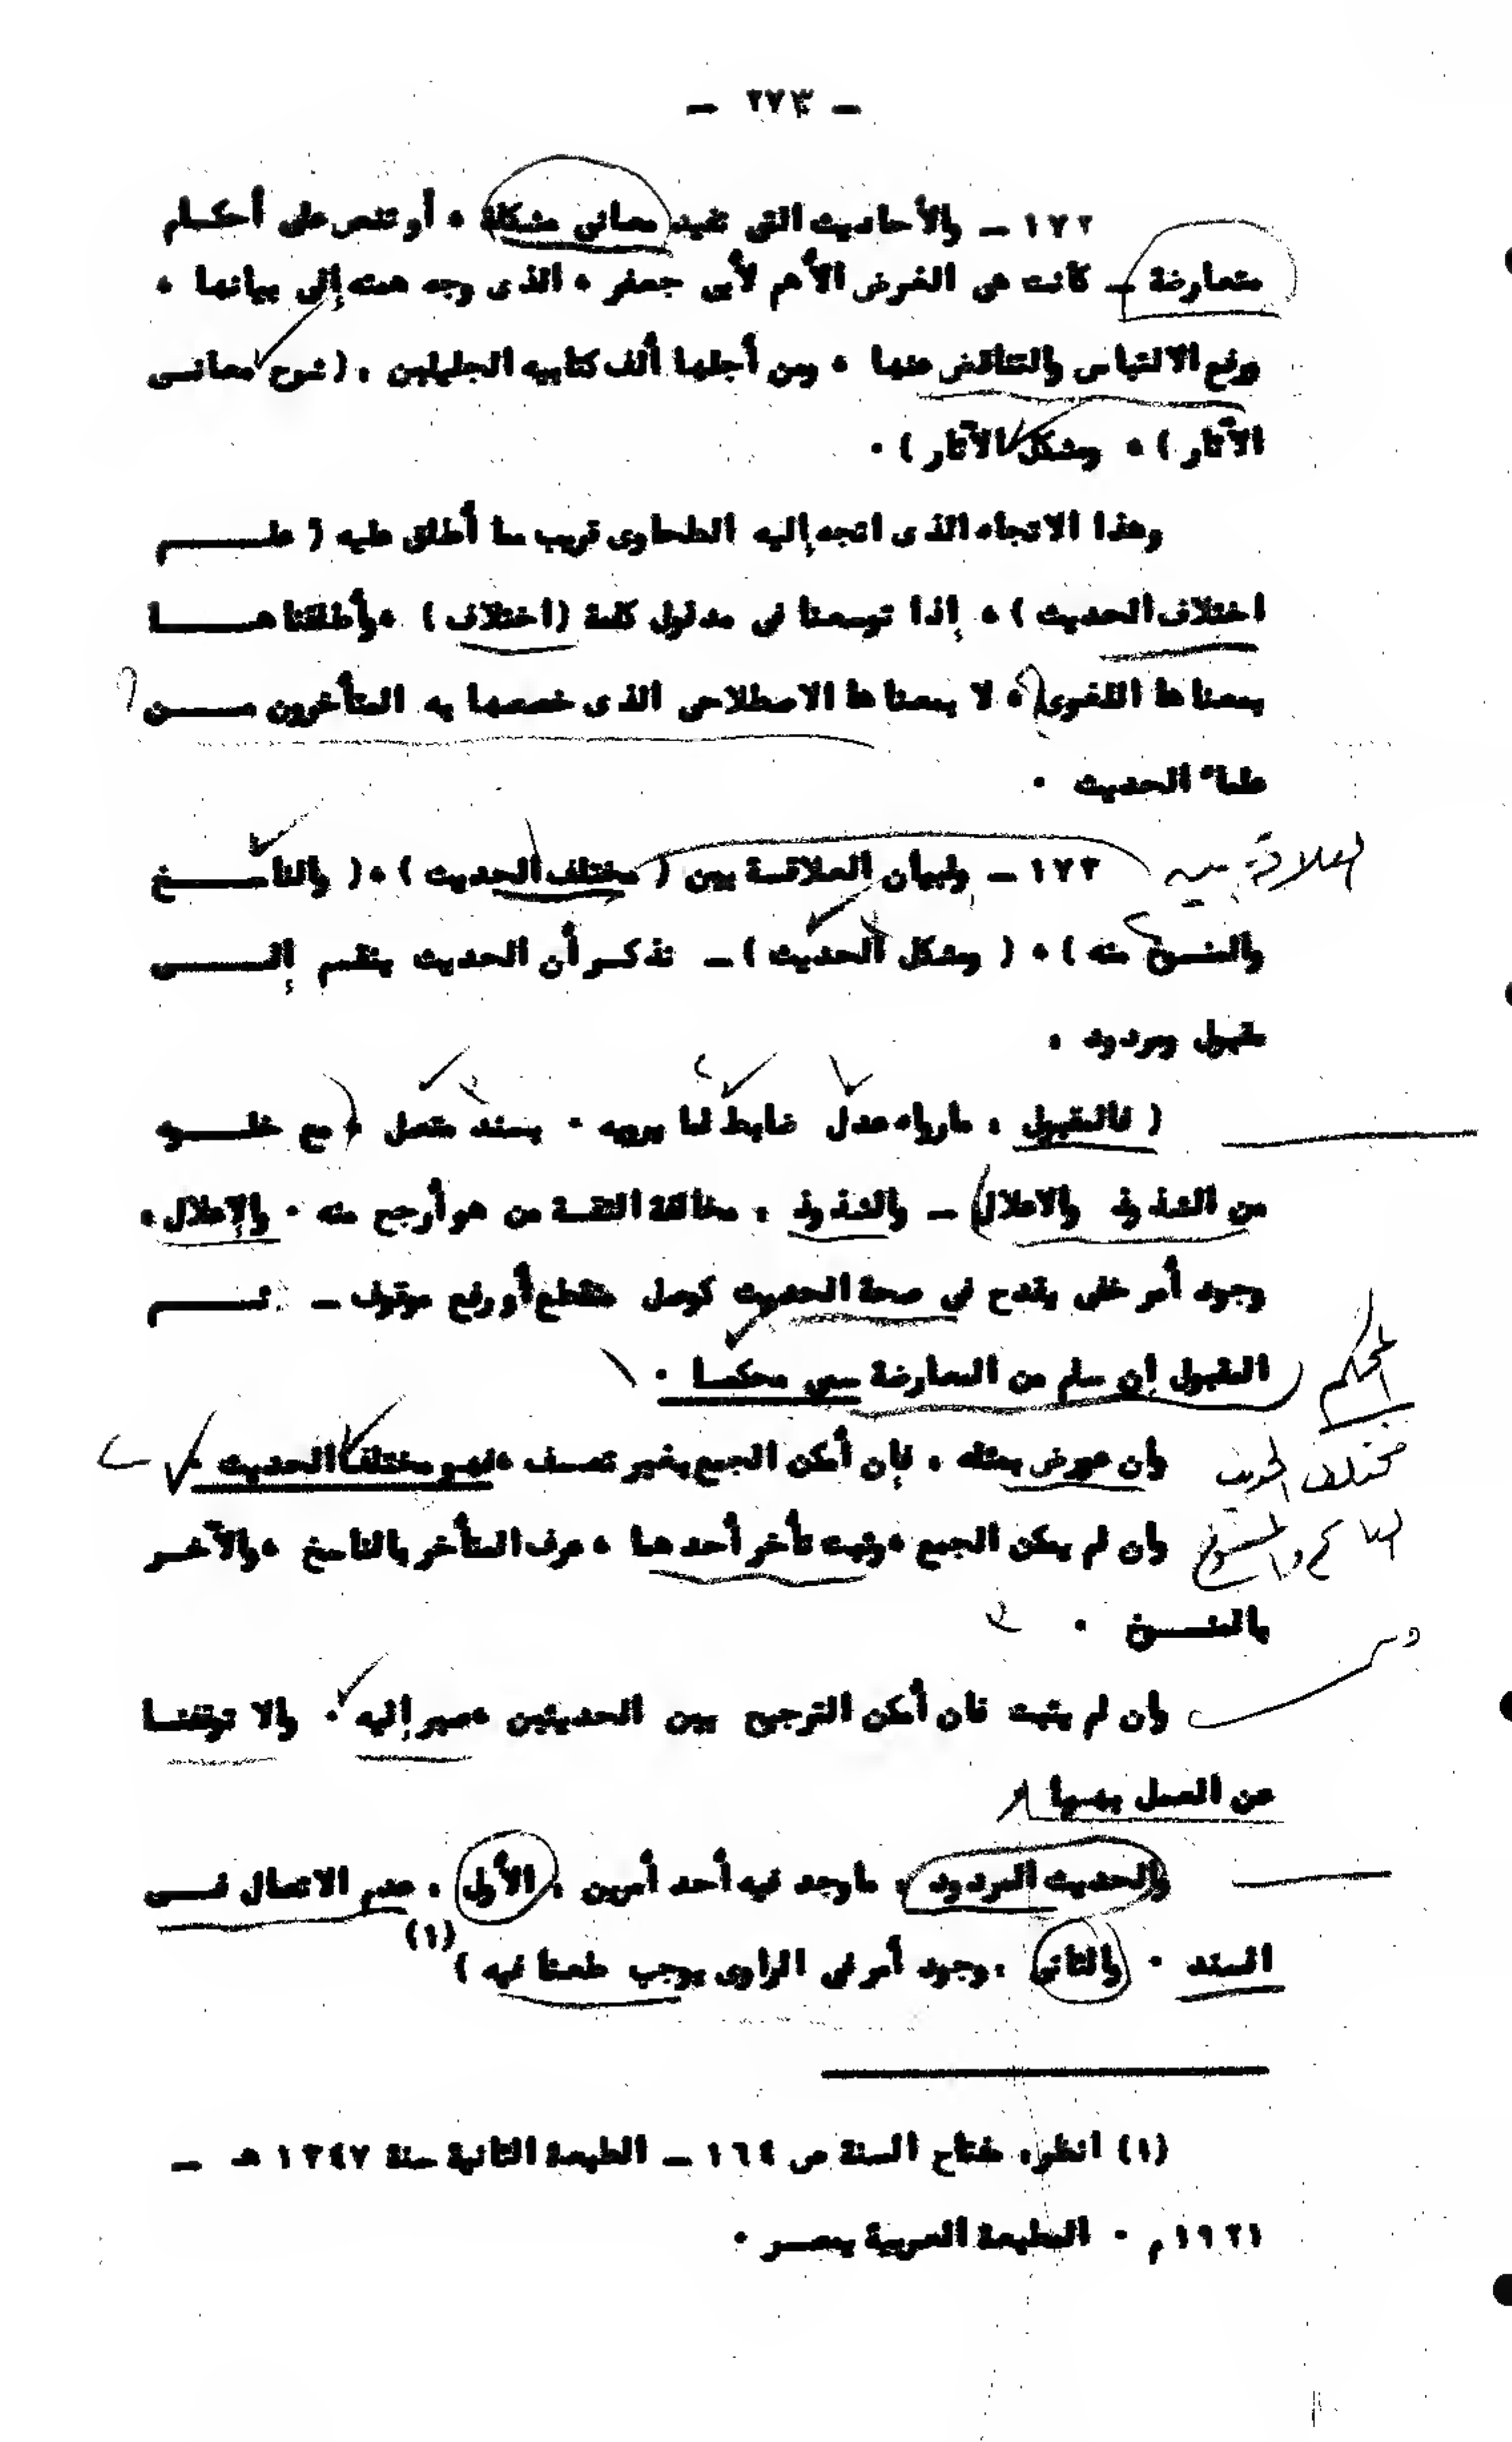 — ٢٧٣ —
١٧٢ — والأحاديث التى تفيد معانى مشكلة ، أو تنص على أحكــام
متعارضة — كانت هى الغرض الأهم لأبى جعفر ، الذى وجه همته إلى بيانها ،
ورفع الالتباس والتناقض عنها ، ومن أجلها ألف كتابيه الجليلين ، ( شرح معانــى
الآثار ) ، ومشكل الآثار ) .
وهذا الاتجاه الذى اتجه إليه الطحاوى قريب مما أطلق عليه ( علــــم
اختلاف الحديث ) ، إذا توسعنا فى مدلول كلمة (اختلاف) ، وأطلقناهــــا
بمعناها اللغوى ، لا بمعناها الاصطلاحى الذى خصصها به المتأخرون مــــن
علماء الحديث .
العلاقة بين
١٧٣ — ولبيان العلاقــة بين ( مختلف الحديث ) ، ( والناســــخ
والمنســوخ منه ) ، ( ومشكل الحديث ) — نذكــر أن الحديث ينقسم إلــــى
مقبول ومردود .
( فالمقبول ، مارواه عدل ضابط لما يرويه . بسند متصل ، مع خلـــوه
من الشذوذ والاعلال) — والشذوذ ، مخالفة الثقــة من هو أرجح منه . والإعلال ،
وجود أمر خفى يقدح فى صحة الحديث كوصل منقطع أو رفع موقوف — ثــــم
المقبول إن سلم من المعارضة سمى محكمــا .
المحكم
وان عورض بمثله ، فإن أمكن الجمع بغير تعســف ، فهو مختلف الحديث .
مختلف الحديث
وان لم يمكن الجمع ، وثبت تأخر أحدهمـا ، عرف المتأخر بالناسخ ، والآخــر
الناسخ والمنسوخ
بالمنســـوخ .
وان لم يثبت فان أمكن الترجيح بين الحديثين ، صير إليه . والا توقفنــا
عن العمل بهمها
والحديث المردود ، ماوجد فيه أحد أمرين ، الأول ، عدم الاتصال فــى
السند . والثانى ، وجود أمر فى الراوى يوجب طعنا فيه ) (١)
(١) انظر، مفتاح السنة ص ١٦٤ — الطبعة الثانية سنة ١٣٤٧ هـ —
١٩٢١ م . المطبعة العربية بمصــر .